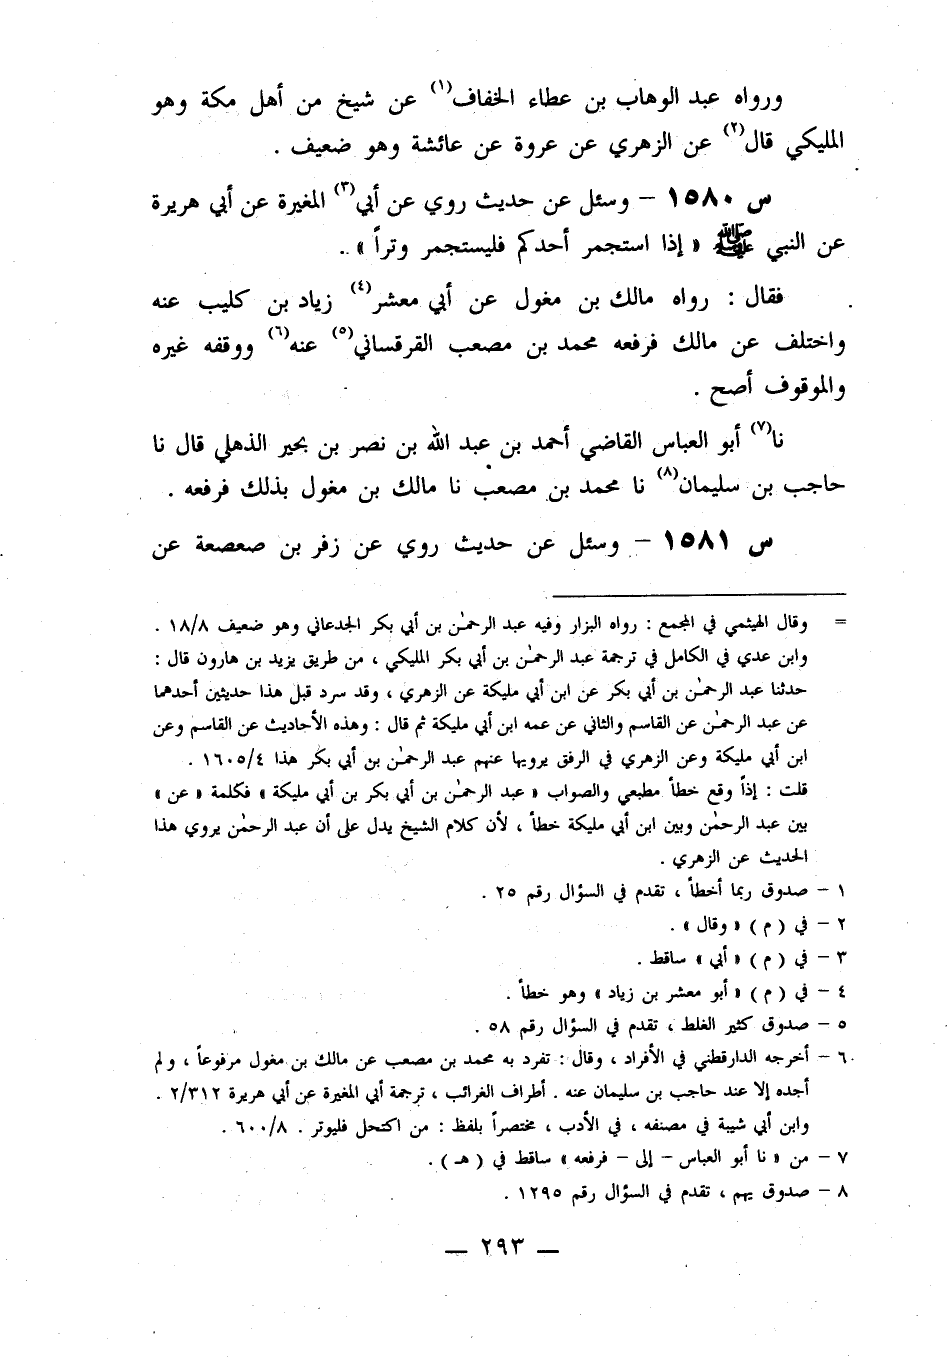 ورواه عبد الوهاب بن عطاء الخفاف(١) عن شيخ من أهل مكة وهو
المليكي قال(٢) عن الزهري عن عروة عن عائشة وهو ضعيف .
س ١٥٨٠ – وسئل عن حديث روي عن أبي(٣) المغيرة عن أبي هريرة
عن النبي ﷺ « إذا استجمر أحدكم فليستجمر وتراً » ..
فقال : رواه مالك بن مغول عن أبي معشر(٤) زياد بن كليب عنه
واختلف عن مالك فرفعه محمد بن مصعب القرقساني(٥) عنه(٦) ووقفه غيره
والموقوف أصح .
نا(٧) أبو العباس القاضي أحمد بن عبد الله بن نصر بن بحير الذهلي قال نا
حاجب بن سليمان(٨) نا محمد بن مصعب نا مالك بن مغول بذلك فرفعه .
س ١٥٨١ – وسئل عن حديث روي عن زفر بن صعصعة عن
= وقال الهيثمي في المجمع : رواه البزار وفيه عبد الرحمٰن بن أبي بكر الجدعاني وهو ضعيف ١٨/٨ .
وابن عدي في الكامل في ترجمة عبد الرحمٰن بن أبي بكر المليكي ، من طريق يزيد بن هارون قال :
حدثنا عبد الرحمٰن بن أبي بكر عن ابن أبي مليكة عن الزهري ، وقد سرد قبل هذا حديثين أحدهما
عن عبد الرحمٰن عن القاسم والثاني عن عمه ابن أبي مليكة ثم قال : وهذه الأحاديث عن القاسم وعن
ابن أبي مليكة وعن الزهري في الرفق يرويها عنهم عبد الرحمٰن بن أبي بكر هذا ١٦٠٥/٤ .
قلت : إذاً وقع خطأ مطبعي والصواب « عبد الرحمٰن بن أبي بكر بن أبي مليكة » فكلمة « عن »
بين عبد الرحمٰن وبين ابن أبي مليكة خطأ ، لأن كلام الشيخ يدل على أن عبد الرحمٰن يروي هذا
الحديث عن الزهري .
١ – صدوق ربما أخطأ ، تقدم في السؤال رقم ٢٥ .
٢ – في ( م ) « وقال » .
٣ – في ( م ) « أبي » ساقط .
٤ – في ( م ) « أبو معشر بن زياد » وهو خطأ .
٥ – صدوق كثير الغلط ، تقدم في السؤال رقم ٥٨ .
٦ – أخرجه الدارقطني في الأفراد ، وقال : تفرد به محمد بن مصعب عن مالك بن مغول مرفوعاً ، ولم
أجده إلا عند حاجب بن سليمان عنه . أطراف الغرائب ، ترجمة أبي المغيرة عن أبي هريرة ٢/٣١٢ .
وابن أبي شيبة في مصنفه ، في الأدب ، مختصراً بلفظ : من اكتحل فليوتر . ٦٠٠/٨ .
٧ – من « نا أبو العباس – إلى – فرفعه » ساقط في ( هـ ) .
٨ – صدوق يهم ، تقدم في السؤال رقم ١٢٩٥ .
— ٢٩٣ —